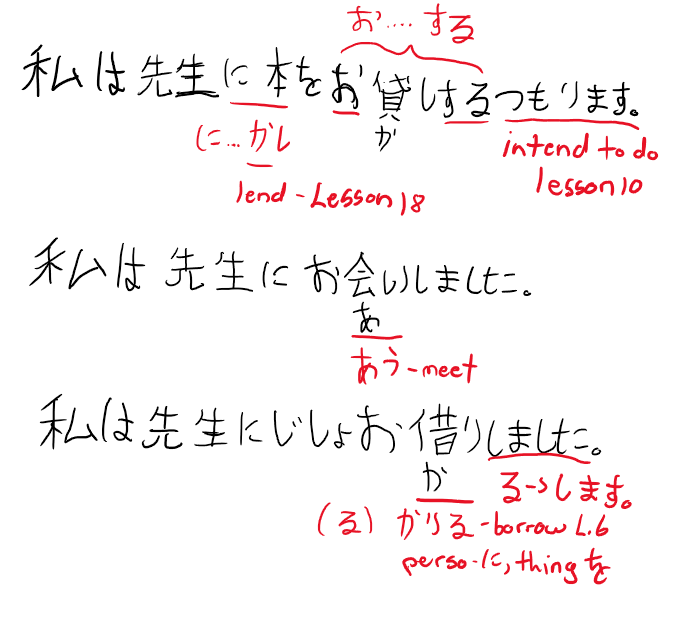 お....する
私は先生に本をお貸しするつもります。
に...かし
か
intend to do
lesson 10
lend - Lesson 18
私は先生にお会いしました。
あ
あう - meet
私は先生にじしょお借りしました。
か
る->します。
(る) かりる - borrow L.6
perso-に, thingを